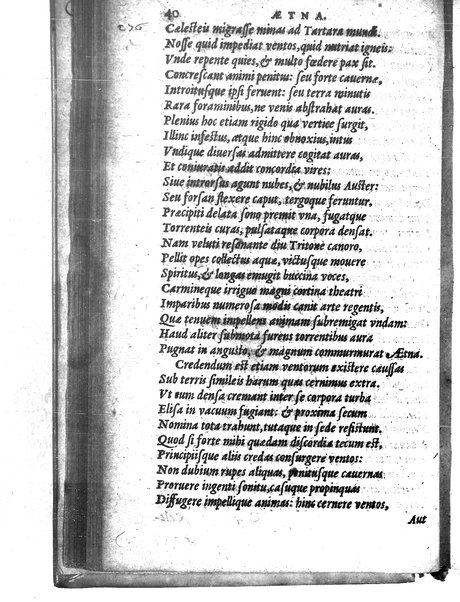 40 ÆTNA.
Cælesteis migrasse minas ad Tartara mundi.
Nosse quid impediat ventos, quid nutriat igneis:
Vnde repente quies, & multo fœdere pax sit.
Concrescant animi penitus: seu forte cauernæ,
Introitusque ipsi feruent: seu terra minutis
Rara foraminibus, ne venis abstrabat auras.
Plenius hoc etiam rigido qua vertice surgit,
Illinc infestus, atque hinc obnoxius, intus
Vndique diuersas admittere cogitat auras,
Et coniuratis addit concordia vires:
Siue introrsus agunt nubes, & nubilus Auster:
Seu forsan flexere caput, tergoque feruntur.
Præcipiti delata sono premit vna, fugatque
Torrenteis curas, pulsataque corpora densat.
Nam veluti resonante diu Tritone canoro,
Pellit opes collectus aquæ, victusque mouere
Spiritus, & longas emugit buccina voces,
Carmineque irriguo magni cortina theatri
Imparibus numerosa modis canit arte regentis,
Quæ tenuem impellens animam subremigat vndam:
Haud aliter submota furens torrentibus aura
Pugnat in angusto, & magnum commurmurat Ætna.
Credendum est etiam ventorum existere caussas
Sub terris simileis harum quas cernimus extra.
Vt cum densa cremant inter se corpora turba
Elisa in vacuum fugiant: & proxima secum
Nomina tota trabunt, tutaque in sede resistunt.
Quod si forte mihi quædam discordia tecum est,
Principiisque aliis credas consurgere ventos:
Non dubium rupes aliquas, penitusque cauernas
Proruere ingenti sonitu, casuque propinquas
Diffugere impellique animas: hinc cernere ventos,
Aut